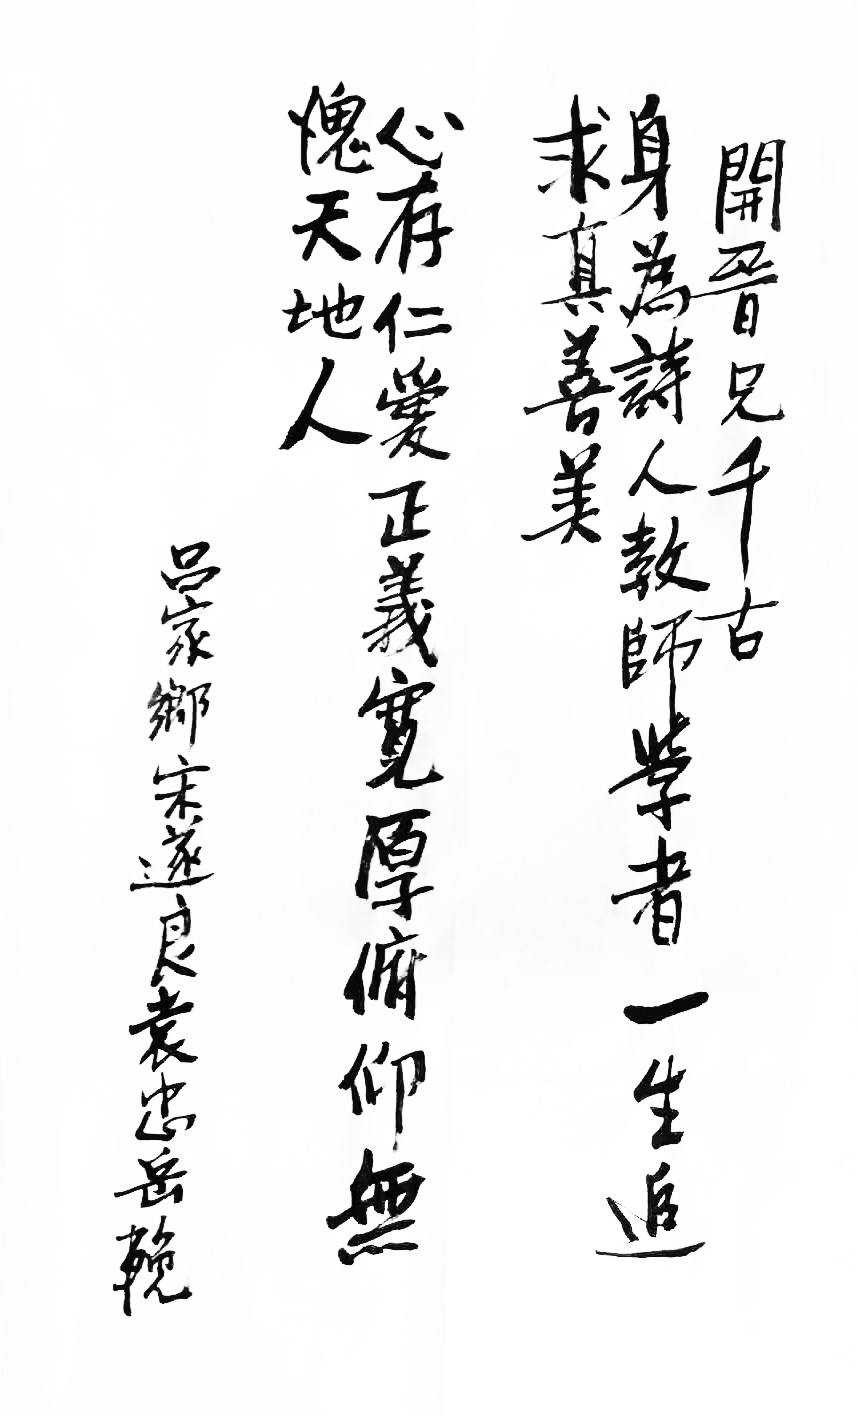 開晋兄千古
身為詩人教師学者一生追
求真善美
心存仁愛正義寬厚俯仰無
愧天地人
吕家鄉宋遂良袁忠岳輓